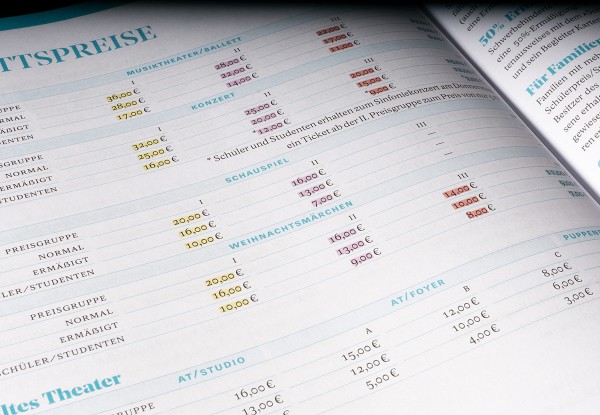 TTSPREISE
MUSIKTHEATER/BALLETT
GRUPPE I II III
NORMAL 36,00 € 28,00 € 22,00 €
ERMÄßIGT 28,00 € 22,00 € 17,00 €
UDENTEN 17,00 € 14,00 € 11,00 €
KONZERT
PREISGRUPPE I II III
NORMAL 32,00 € 25,00 € 20,00 €
ERMÄßIGT 25,00 € 20,00 € 15,00 €
STUDENTEN 16,00 € *12,00 € *9,00 €
* Schüler und Studenten erhalten zum Sinfoniekonzert am Donners
ein Ticket ab der II. Preisgruppe zum Preis von nur
SCHAUSPIEL
PREISGRUPPE I II III
NORMAL 20,00 € 16,00 € —
ERMÄßIGT 16,00 € 13,00 € —
LER/STUDENTEN 10,00 € 7,00 €
WEIHNACHTSMÄRCHEN
PREISGRUPPE I II III
NORMAL 20,00 € 16,00 € 14,00 €
ERMÄßIGT 16,00 € 13,00 € 10,00 €
SCHÜLER/STUDENTEN 10,00 € 9,00 € 8,00 €
ltes Theater
AT/STUDIO AT/FOYER PUPPEN
A B C
16,00 € 15,00 € 12,00 € 8,00 €
13,00 € 12,00 € 10,00 € 6,00 €
5,00 € 4,00 € 3,00 €
50% Er
Schwerbehinder
eine 50%-Ermäßig
tenausweises mit dem
und sein Begleiter Karten
Für Familien
Familien mit meh
Schülerpreis/S
Besitzer des
sene erhal
gewiese
ren e